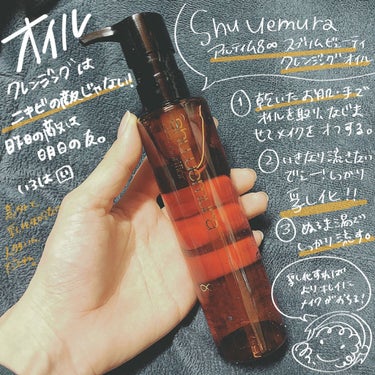 オイル
クレンジングは
ニキビの敵じゃない!
昨日の敵は
明日の友。
Shu uemura
アルティム8∞ スブリムビューティ
クレンジングオイル
① 乾いたお肌・手で
オイルを取り、なじま
せてメイクをオフする。
② いきなり流さない
でー!しっかり
乳化!!
③ ぬるま湯で
しっかり流す。
乳化すれば
よりキレイに
メイクがおちる!
shu uemura
8